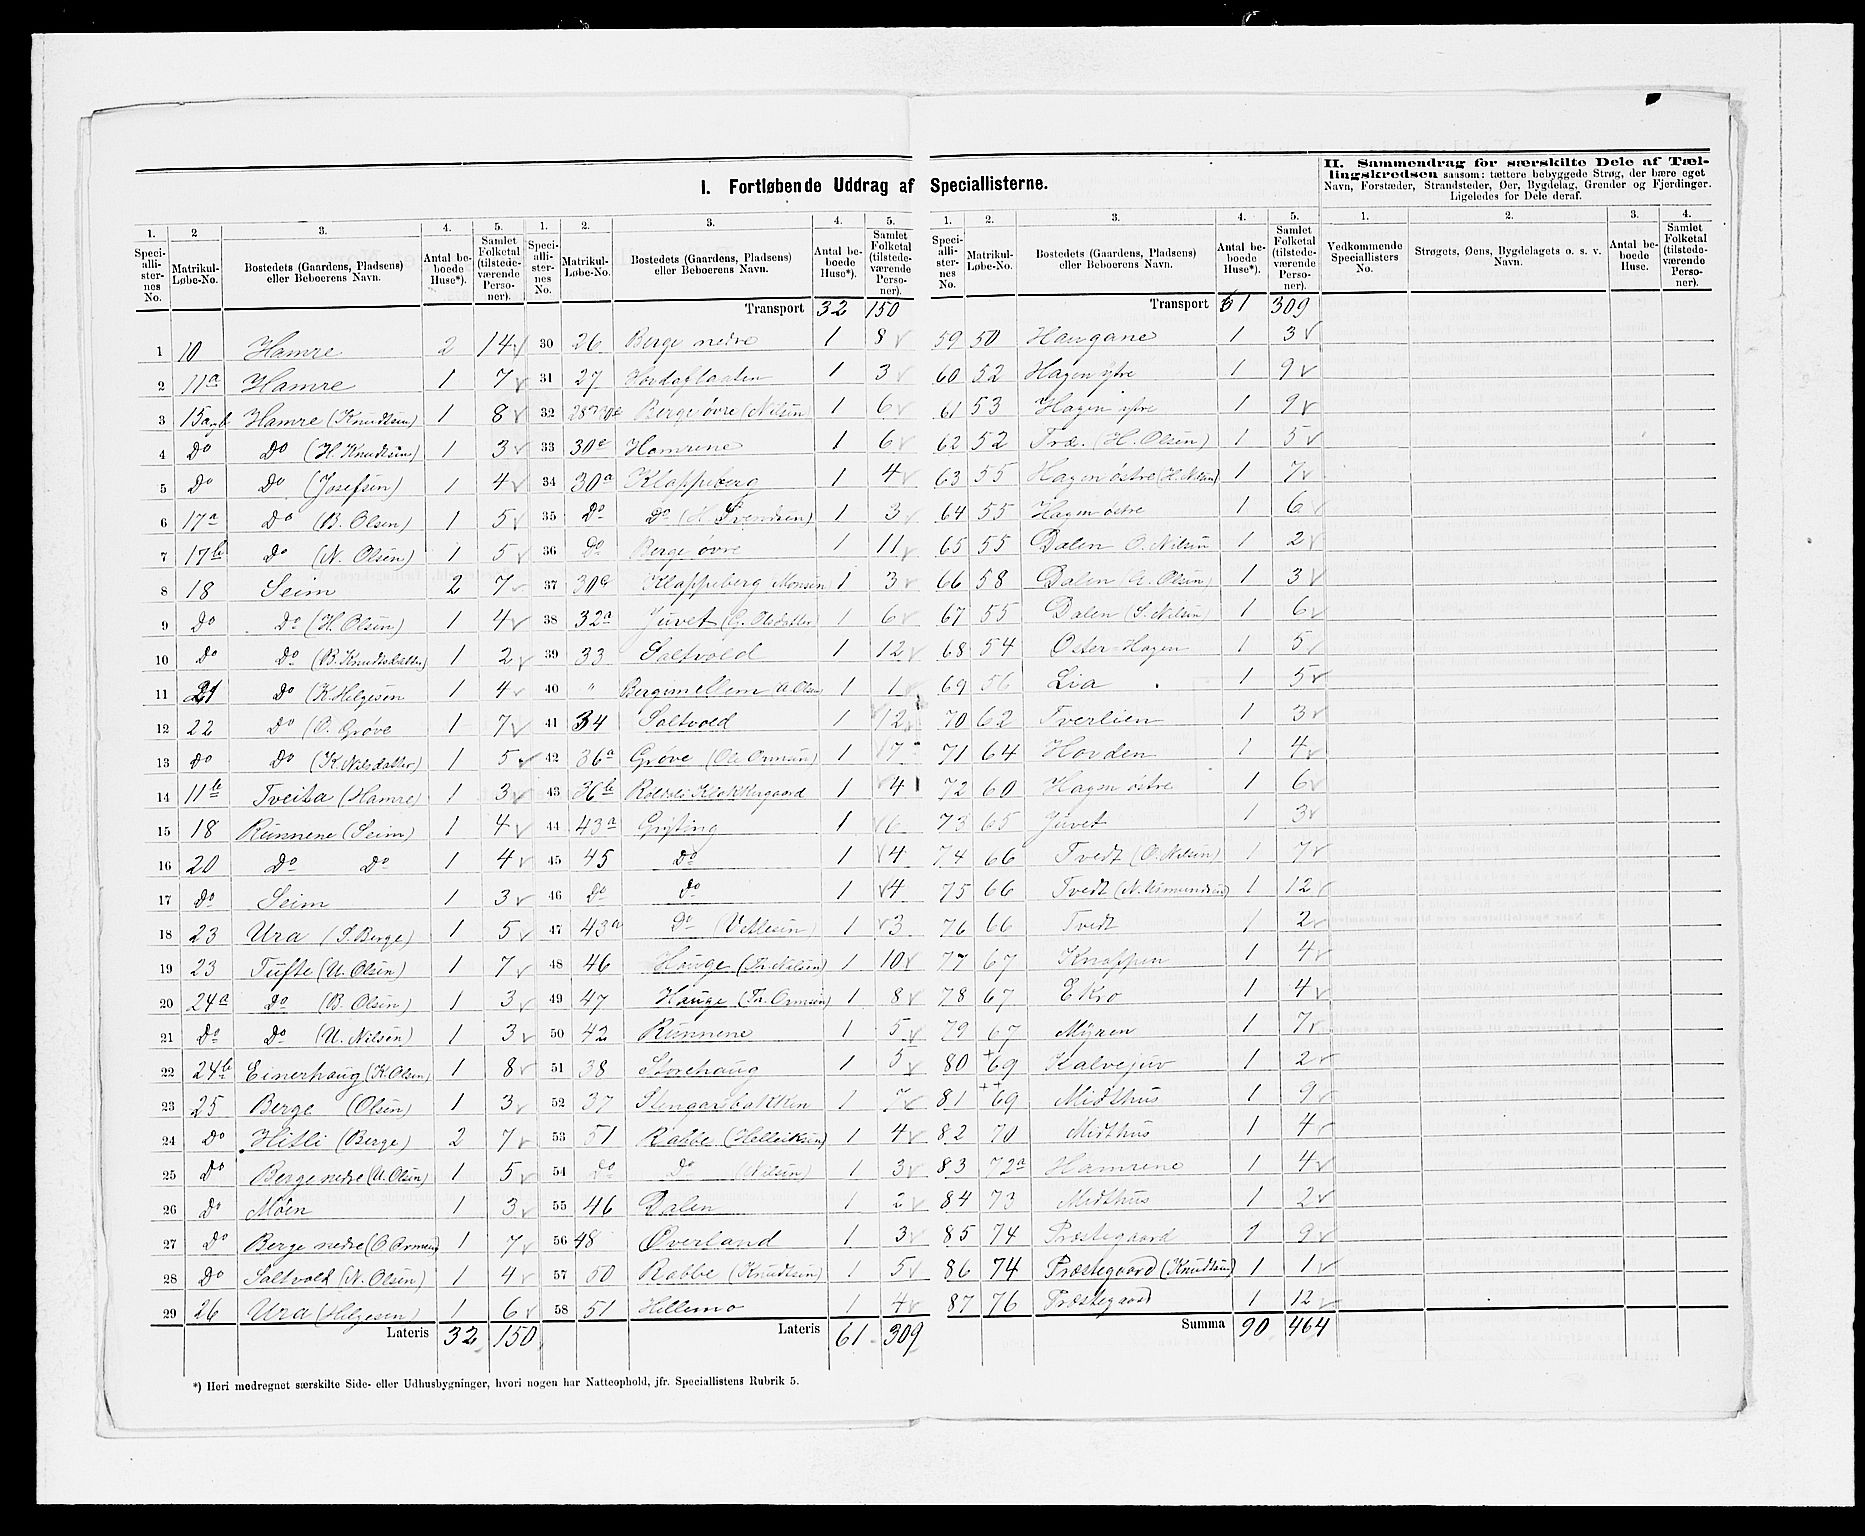 I. Fortløbende Uddrag af Speciallisterne.
II. Sammendrag for særskilte Dele af Tællingskredsen saasom: tættere bebyggede Strøg, der bære eget
Navn, Forstæder, Strandsteder, Øer, Bygdelag, Grender og Fjerdinger.
Ligeledes for Dele deraf.
1. 2 3. 4. 5.
Speciallisternes No. Matrikul-Løbe-No. Bostedets (Gaardens, Pladsens) eller Beboerens Navn. Antal beboede Huse*). Samlet Folketal (tilstedeværende Personer).
1 10 Hamre 2 14
2 11a Hamre 1 7
3 15a,b Hamre (Knudtsen) 1 8
4 Do Do (H. Knudtsen) 1 3
5 Do Do (Josefsen) 1 4
6 17a Do (B. Olsen) 1 5
7 17b Do (N. Olsen) 1 5
8 18 Seim 2 7
9 Do Do (H. Olsen) 1 4
10 Do Do (B. Knudtsdatter) 1 2
11 21 Do (K. Helgesen 1 4
12 22 Do (O. Grøve 1 7
13 Do Do (K. Nilsdatter) 1 5
14 11b Tveita (Hamre) 1 3
15 18 Runnene (Seim) 1 4
16 20 Do Do 1 4
17 Do Seim 1 3
18 23 Ura (S. Berge) 1 5
19 23 Tufte (A. Olsen) 1 7
20 24a Do (B. Olsen) 1 3
21 Do Do (A. Nilsen) 1 3
22 24b Einerhaug (K. Olsen) 1 8
23 25 Berge (Olsen) 1 3
24 Do Hitli (Berge) 2 7
25 Do Berge nedre (A. Olsen) 1 5
26 Do Moen 1 3
27 Do Berge nedre (O Ormsen) 1 7
28 Do Saltvold (N. Olsen) 1 4
29 26 Ura (Helgesen) 1 6
Lateris 32 150
1. 2. 3. 4. 5.
Speciallisternes No. Matrikul-Løbe-No. Bostedets (Gaardens, Pladsens) eller Beboerens Navn. Antal beboede Huse*). Samlet Folketal (tilstedeværende Personer).
Transport 32 150
30 26 Berge nedre 1 8
31 27 1 3
32 Berge øvre (Nilsen) 1 6
33 30e Hamrene 1 6
34 30a Klappeberg 1 4
35 Do Do (N Svendsen) 1 3
36 Do Berge øvre 1 11
37 30a Klappeberg Monsen) 1 3
38 32a Juvet (G. Olsdatter 1 6
39 33 Saltvold 1 12
40 " Bergemellem A Olsen) 1 1
41 34 Saltvold 1 12
42 36a Grøve (Ole Ormsen) 1 7
43 36b Klokkergaard 1 4
44 43a Grjting 1 6
45 45 Do 1 4
46 Do Do 1 4
47 43a Do (Vetlesen) 1 3
48 46 Hauge (Nilsen) 1 10
49 47 Hauge (Tr. Ormsen) 1 8
50 42 Runnene 1 5
51 38 Storehaug 1 5
52 37 Slengarsbakken 1 7
53 51 Rabbe (Helleiksen) 1 4
54 Do Do (Nilsen) 1 3
55 46 Dalen 1 2
56 48 Øverland 1 3
57 50 Rabbe (Knudtsen) 1 5
58 51 Hellemo 1 4
Lateris 61 309
1. 2. 3. 4. 5.
Speciallisternes No. Matrikul-Løbe-No. Bostedets (Gaardens, Pladsens) eller Beboerens Navn. Antal beboede Huse*). Samlet Folketal (tilstedeværende Personer).
Transport 61 309
59 50 Haugane 1 3
60 52 Hagen ytre 1 9
61 53 Hagen ytre 1 9
62 52 Træ. (H. Olsen) 1 5
63 55 Hagen østre (H. Nilsen) 1 7
64 55 Hagen østre 1 6
65 55 Dalen O. Nilsen 1 2
66 58 Dalen (A. Olsen) 1 3
67 55 Dalen (S. Nilsen) 1 6
68 54 Øster-Hagen 1 5
69 56 Lia 1 5
70 62 Tverlien 1 3
71 64 Hovden 1 4
72 60 Hagen østre 1 6
73 65 Juvet 1 3
74 66 Tvedt (O. Nilsen) 1 7
75 66 Tvedt (N. Asmundsen) 1 12
76 66 Tvedt 1 2
77 67 Knappen 1 4
78 67 Ekro 1 4
79 67 Myren 1 7
80 +69 Kalvejuv 1 2
81 ++69 Midthus 1 9
82 70 Midthus 1 4
83 72a Hamrene 1 4
84 73 Midthus 1 2
85 74 Præstegaard 1 9
86 74 Præstegaard (Knudtsen) 1 1
87 76 Præstegaard 1 12
Summa 90 464
1. 2. 3. 4.
Vedkommende Speciallisters No. Strøgets, Øens, Bygdelagets o. s. v. Navn. Antal beboede Huse. Samlet Folketal (tilstedeværende Personer).
*) Heri medregnet særskilte Side- eller Udhusbygninger, hvori nogen har Natteophold, jfr. Speciallistens Rubrik 5.